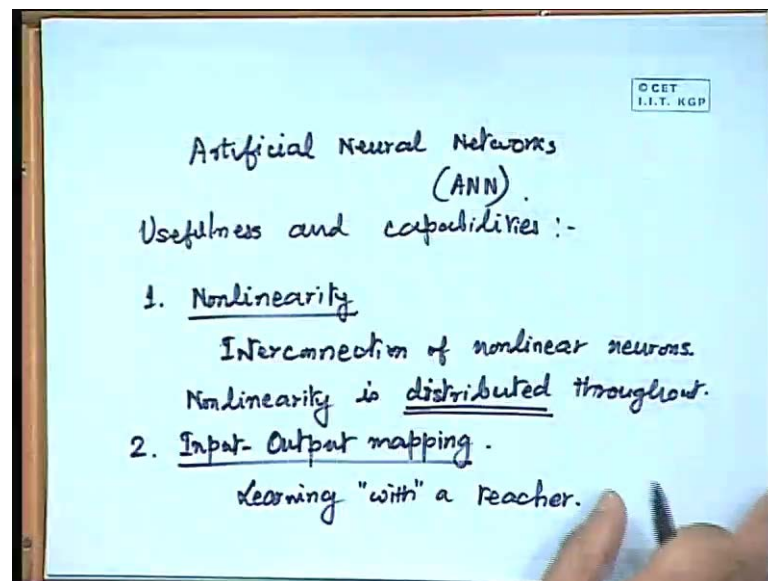 © CET
I.I.T. KGP
Artificial Neural Networks
(ANN).
Usefulness and capabilities :-
1. Nonlinearity
Interconnection of nonlinear neurons.
Nonlinearity is distributed throughout.
2. Input-Output mapping.
Learning "with" a teacher.